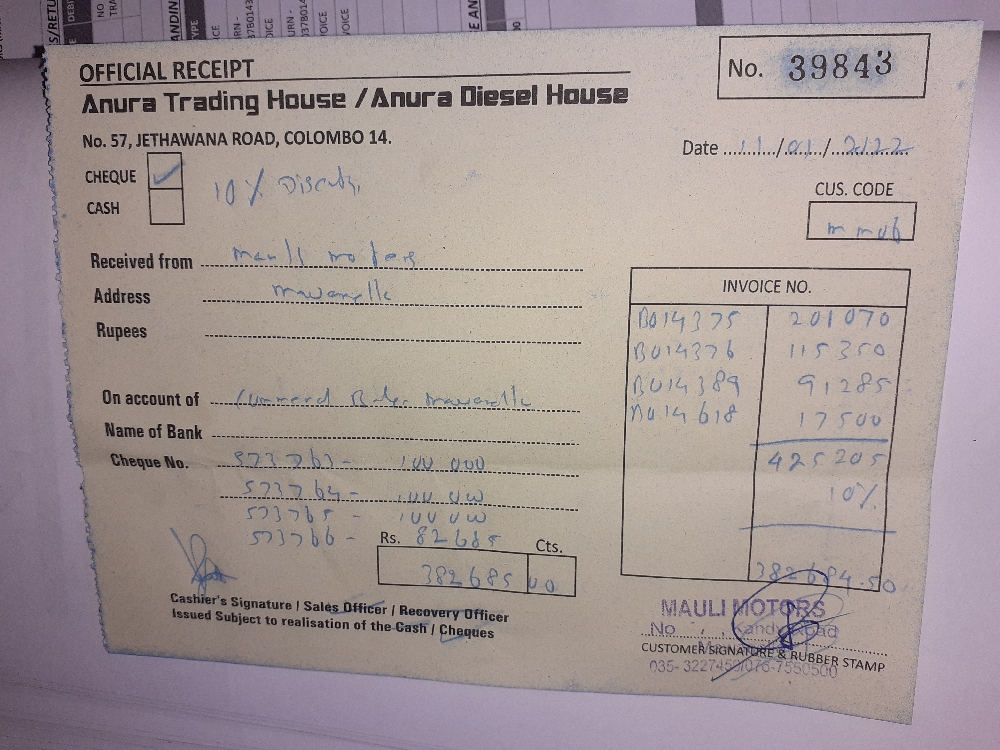 OFFICIAL RECEIPT
No. 39843
Anura Trading House / Anura Diesel House
No. 57, JETHAWANA ROAD, COLOMBO 14.
Date 11/01/2122
CHEQUE ✓
10%
CASH
CUS. CODE
Received from motors
Address
Rupees
INVOICE NO.
B014375 201070
B014376 115350
B014389 91285
B014618 17500
425205
10%
382684.50
On account of
Name of Bank
Cheque No. 573763- 100 000
573764-
573765-
573766- 82685
Rs. Cts.
382685 00
Cashier's Signature / Sales Officer / Recovery Officer
Issued Subject to realisation of the Cash / Cheques
MAULI MOTORS
No Kandy Road
CUSTOMER SIGNATURE & RUBBER STAMP
035- 3227459/076-7550500